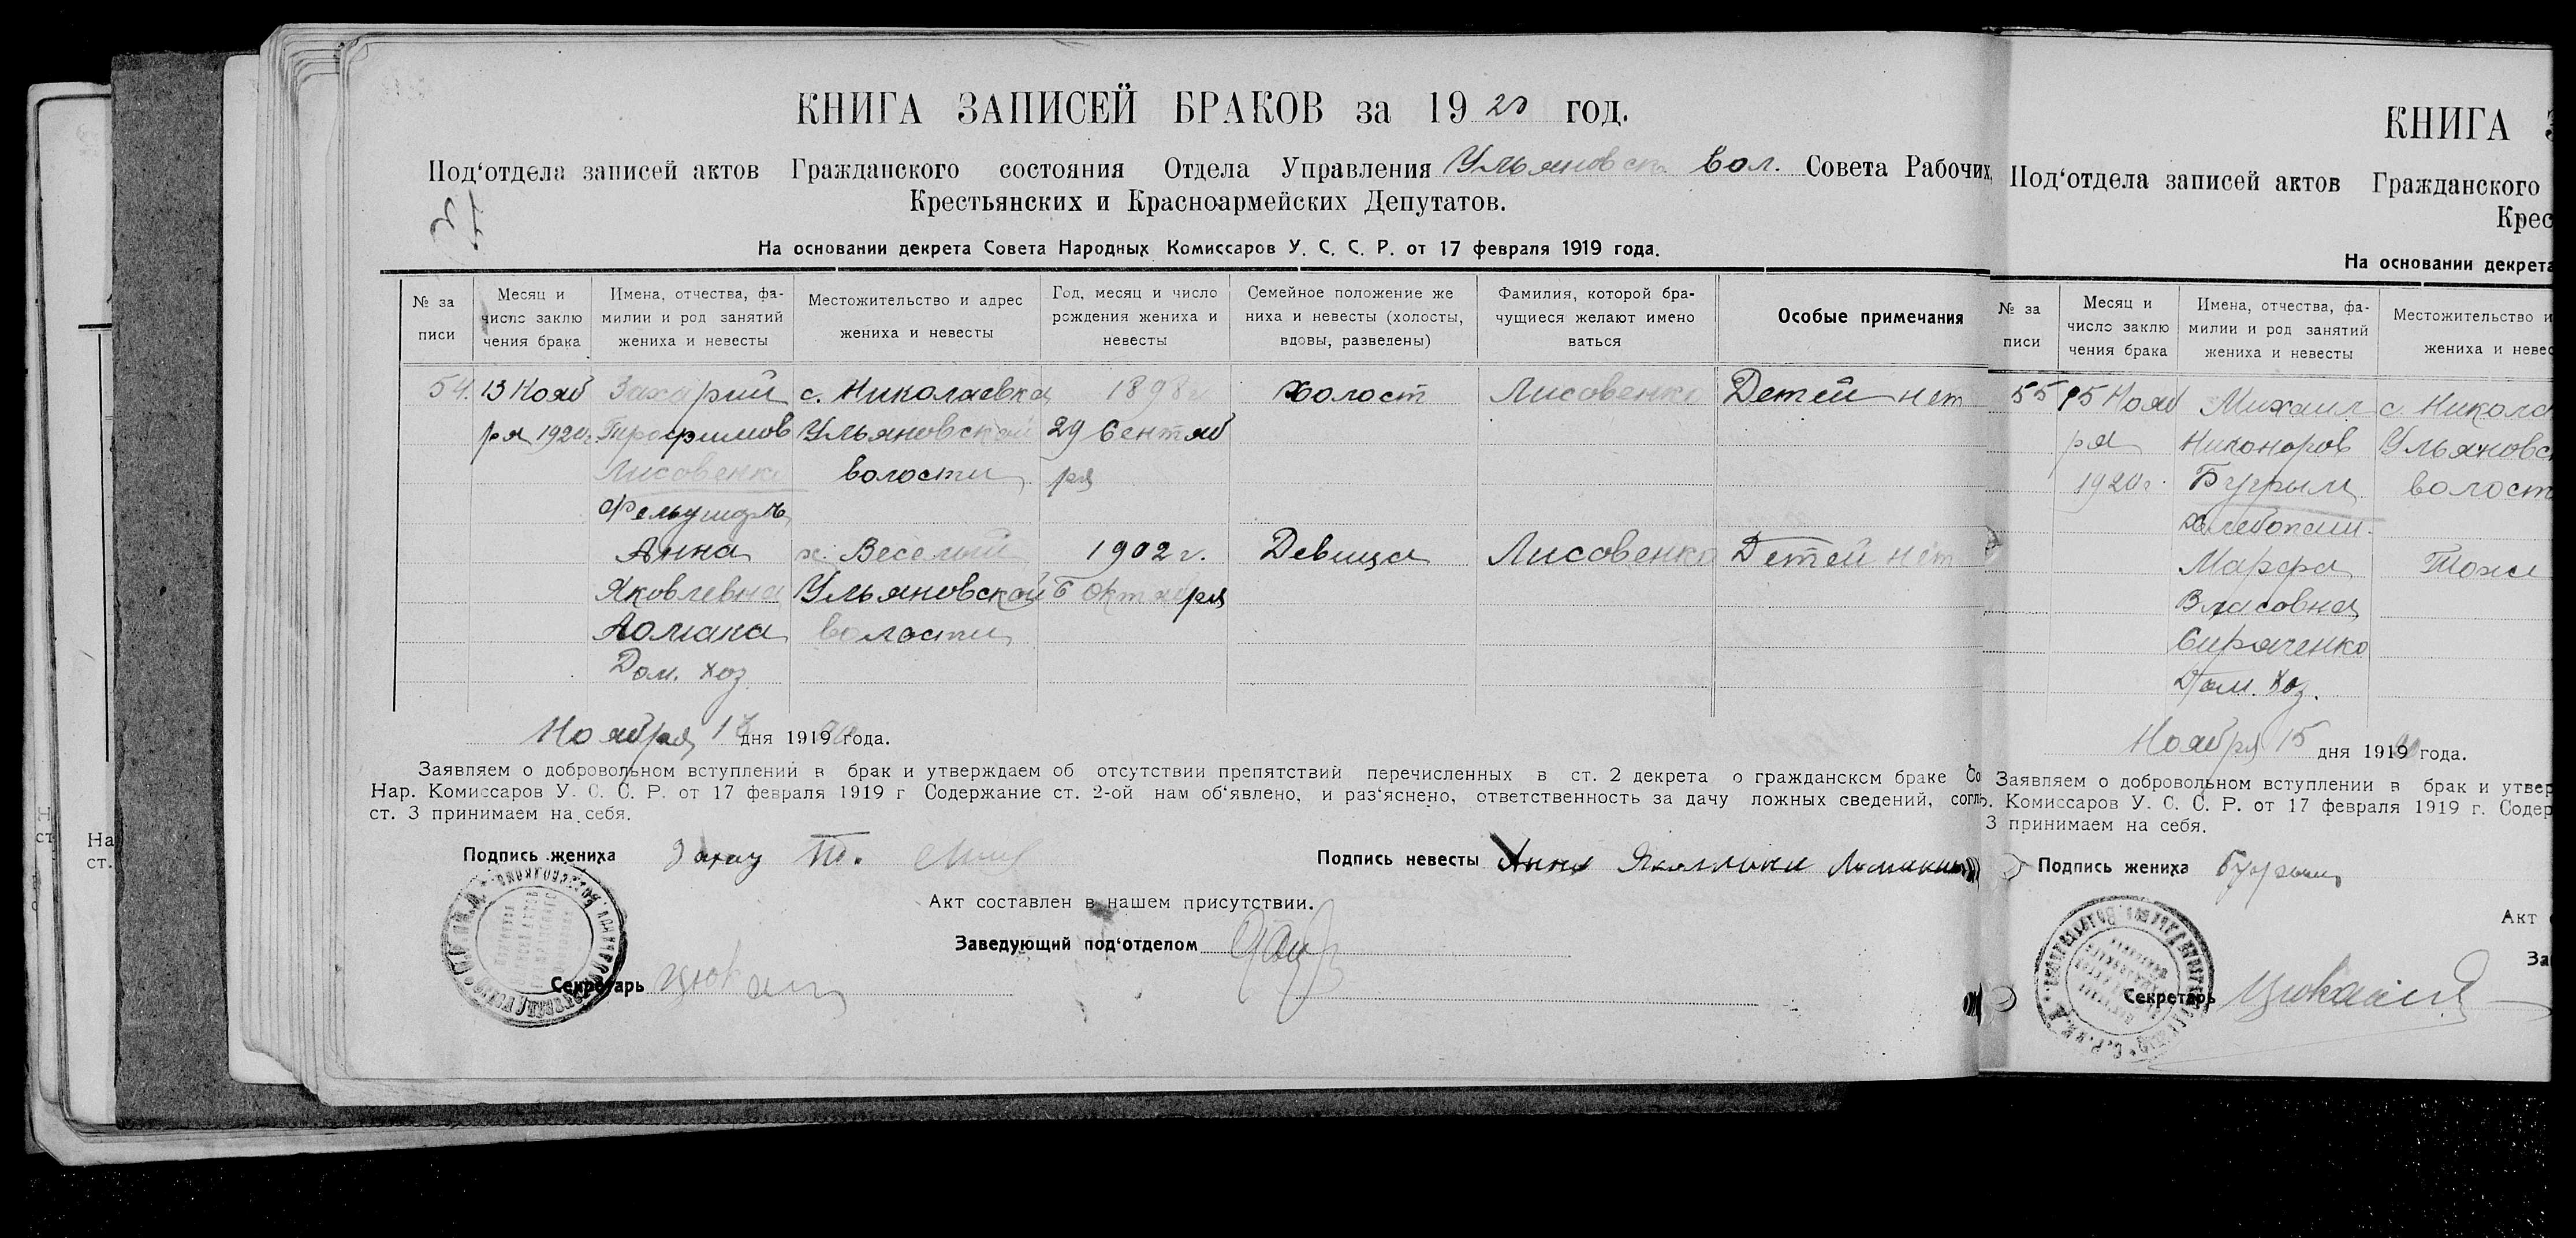 КНИГА ЗАПИСЕЙ БРАКОВ за 1920 год.
Под‘отдела записей актов Гражданского состояния Отдела Управления Ульяновск. вол. Совета Рабочих,
Крестьянских и Красноармейских Депутатов.
На основании декрета Совета Народных Комиссаров У. С. С. Р. от 17 февраля 1919 года.
№ за писи
Месяц и число заклю чения брака
Имена, отчества, фа- милии и род занятий жениха и невесты
Местожительство и адрес жениха и невесты
Год, месяц и число рождения жениха и невесты
Семейное положение же ниха и невесты (холосты, вдовы, разведены)
Фамилия, которой бра- чущиеся желают имено ваться
Особые примечания
54. 13 Нояб Захарий с. Николаевка 1898 г. холост Лисовенко Детей нет
ря 1920г. Трофимов Ульяновской 29 Сентяб
Лисовенко волости ря
Анна х. Веселый 1902 г. Девица Лисовенко Детей нет
Яковлевна Ульяновской 6 Октября
волости
Дом. хоз.
Ноября дня 1919 года.
Заявляем о добровольном вступлении в брак и утверждаем об отсутствии препятствий перечисленных в ст. 2 декрета о гражданском браке Со
Нар. Комиссаров У. С. С. Р. от 17 февраля 1919 г Содержание ст. 2-ой нам об‘явлено, и раз‘яснено, ответственность за дачу ложных сведений, согл
ст. 3 принимаем на себя.
Подпись жениха Подпись невесты Анна
Акт составлен в нашем присутствии.
Заведующий под‘отделом
Секретарь
КНИГА З
Под‘отдела записей актов Гражданского
Крес
На основании декрета
№ за писи
Месяц и число заклю чения брака
Имена, отчества, фа- милии и род занятий жениха и невесты
Местожительство и
жениха и невес
55 15 Нояб Михаил с. Никола
ря Никоноров Ульяновс
1920г. Бугрым волост
хлебопаш.
Марфа Тоже
Власовна
Сираченко
Дом. хоз.
Ноября 15 дня 1919 года.
Заявляем о добровольном вступлении в брак и утвер
. Комиссаров У. С. С. Р. от 17 февраля 1919 г. Содер
3 принимаем на себя.
Подпись жениха Бугрым
Акт
За
Секретарь